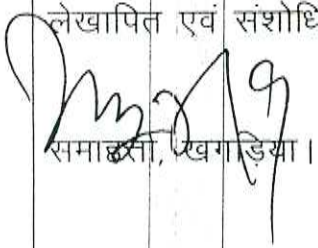 लेखापित एवं संशोधि
समाहर्ता, खगड़िया।